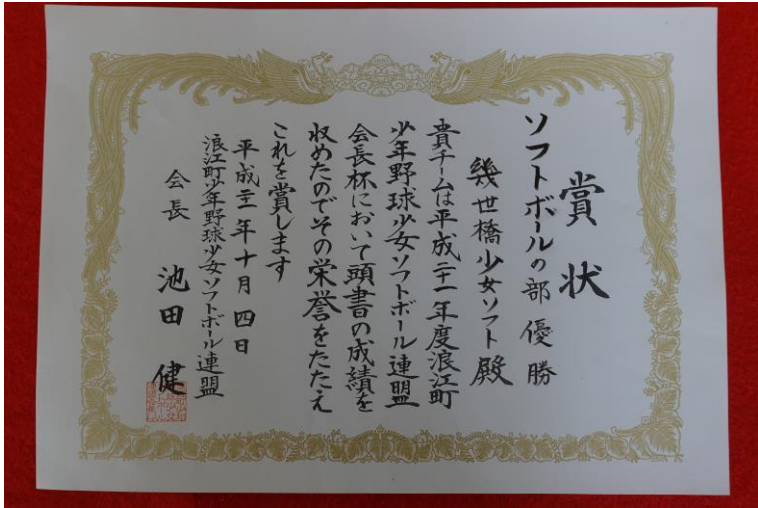 賞状
ソフトボールの部 優勝
幾世橋少女ソフト殿
貴チームは平成二十一年度浪江町
少年野球少女ソフトボール連盟
会長杯において頭書の成績を
収めたのでその栄誉をたたえ
これを賞します
平成二十一年十月四日
浪江町少年野球少女ソフトボール連盟
会長 池田 健